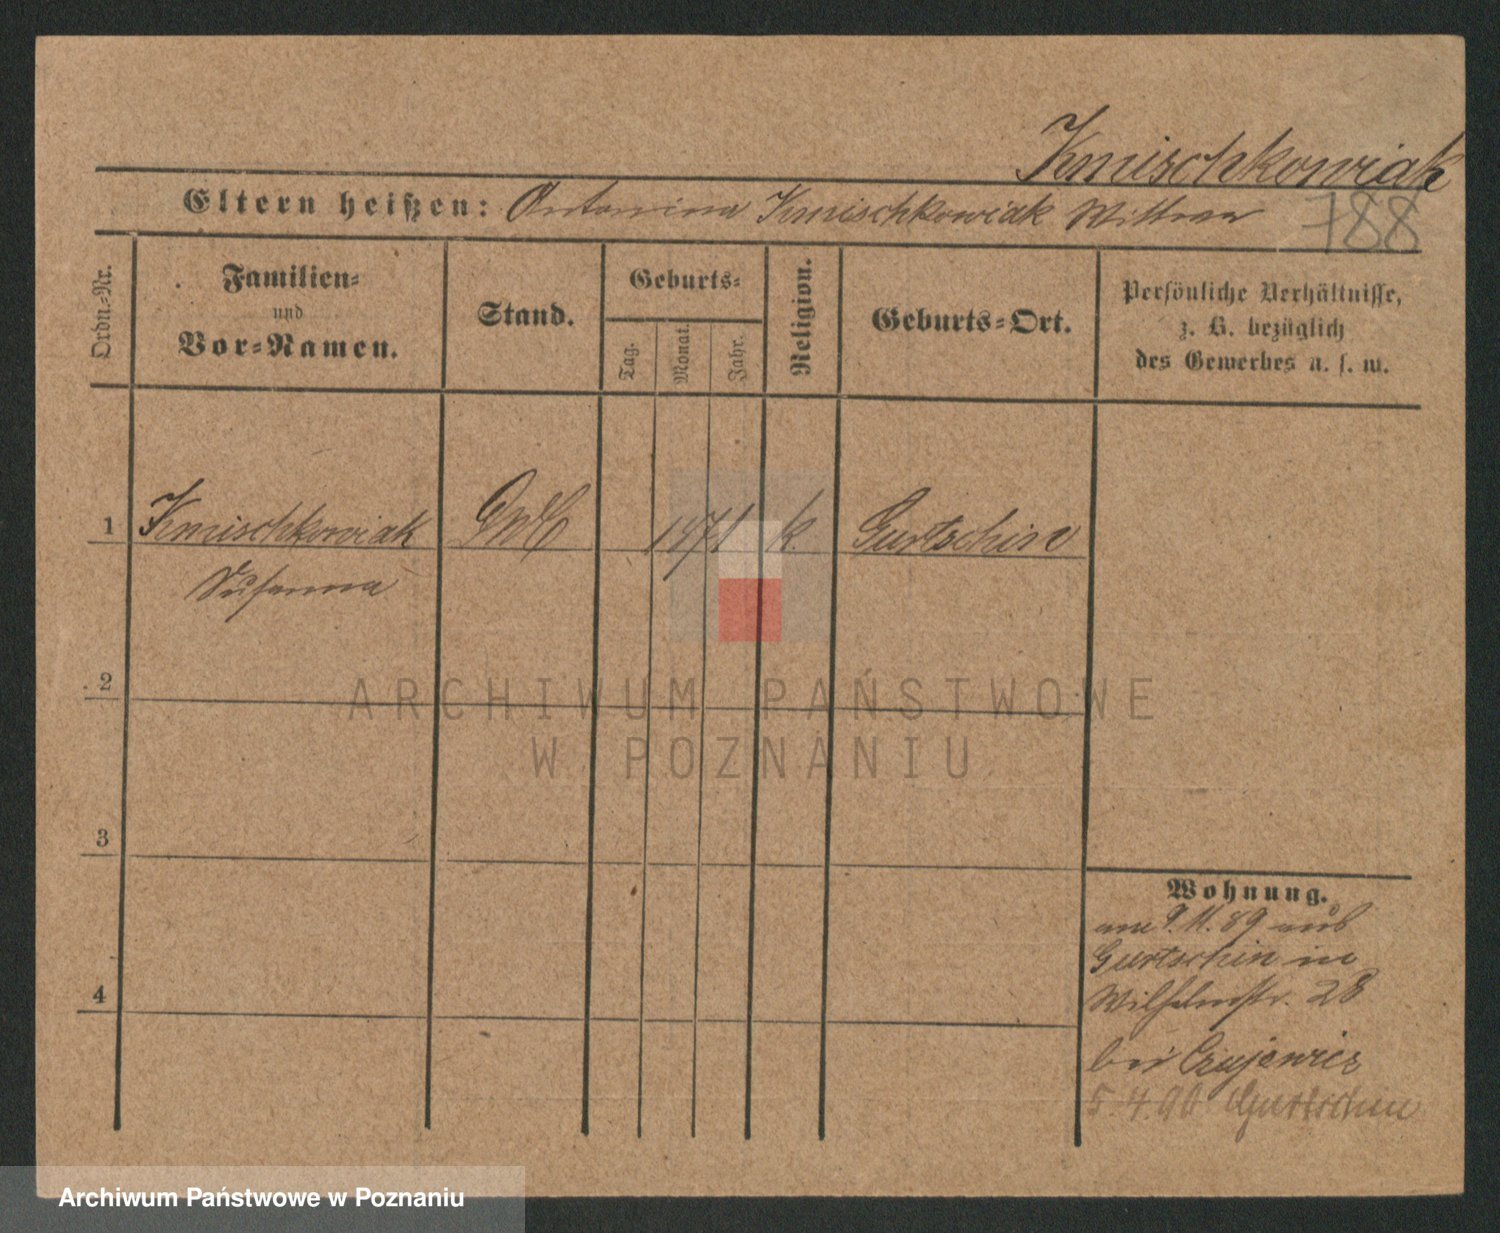 Kmischkowiak
Eltern heißen: Antonina Kmischkowiak Wittwe
788
Ordn.-Nr.
Familien-
und
Vor-Namen.
Stand.
Geburts-
Tag.
Monat.
Jahr.
Religion.
Geburts-Ort.
Persönliche Verhältnisse,
z. B. bezüglich
des Gewerbes u. s. w.
1 Kmischkowiak 1871 k. Gurtschin
Susanna
2
3
4
Wohnung.
am 9.11.89 aus
Gurtschin in
Wilhelmstr. 28
bei
5.4.90 Gurtschin
ARCHIWUM PAŃSTWOWE
W POZNANIU
Archiwum Państwowe w Poznaniu